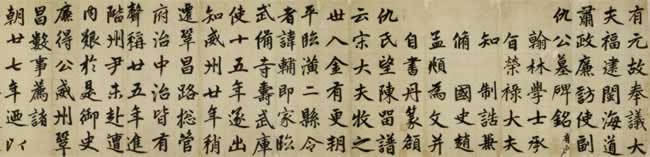 有元故奉議大
夫福建閩海道
肅政廉訪使副
仇公墓碑銘
翰林學士承
旨榮祿大夫
知 制誥兼
脩 國史趙
孟頫為文并
自書丹篆額
仇氏望陳留譜
云宋大夫牧之
世入金有更朔
平臨潢二縣令
者諱輔即家臨
武備寺壽武庫
使十五年遂出
知威州廿年稍
遷鞏昌路總管
府治中治皆有
聲稱廿五年進
階州尹未赴遭
內艱於是御史
廉得公威州鞏
昌數事薦諸
朝廿七年迺以